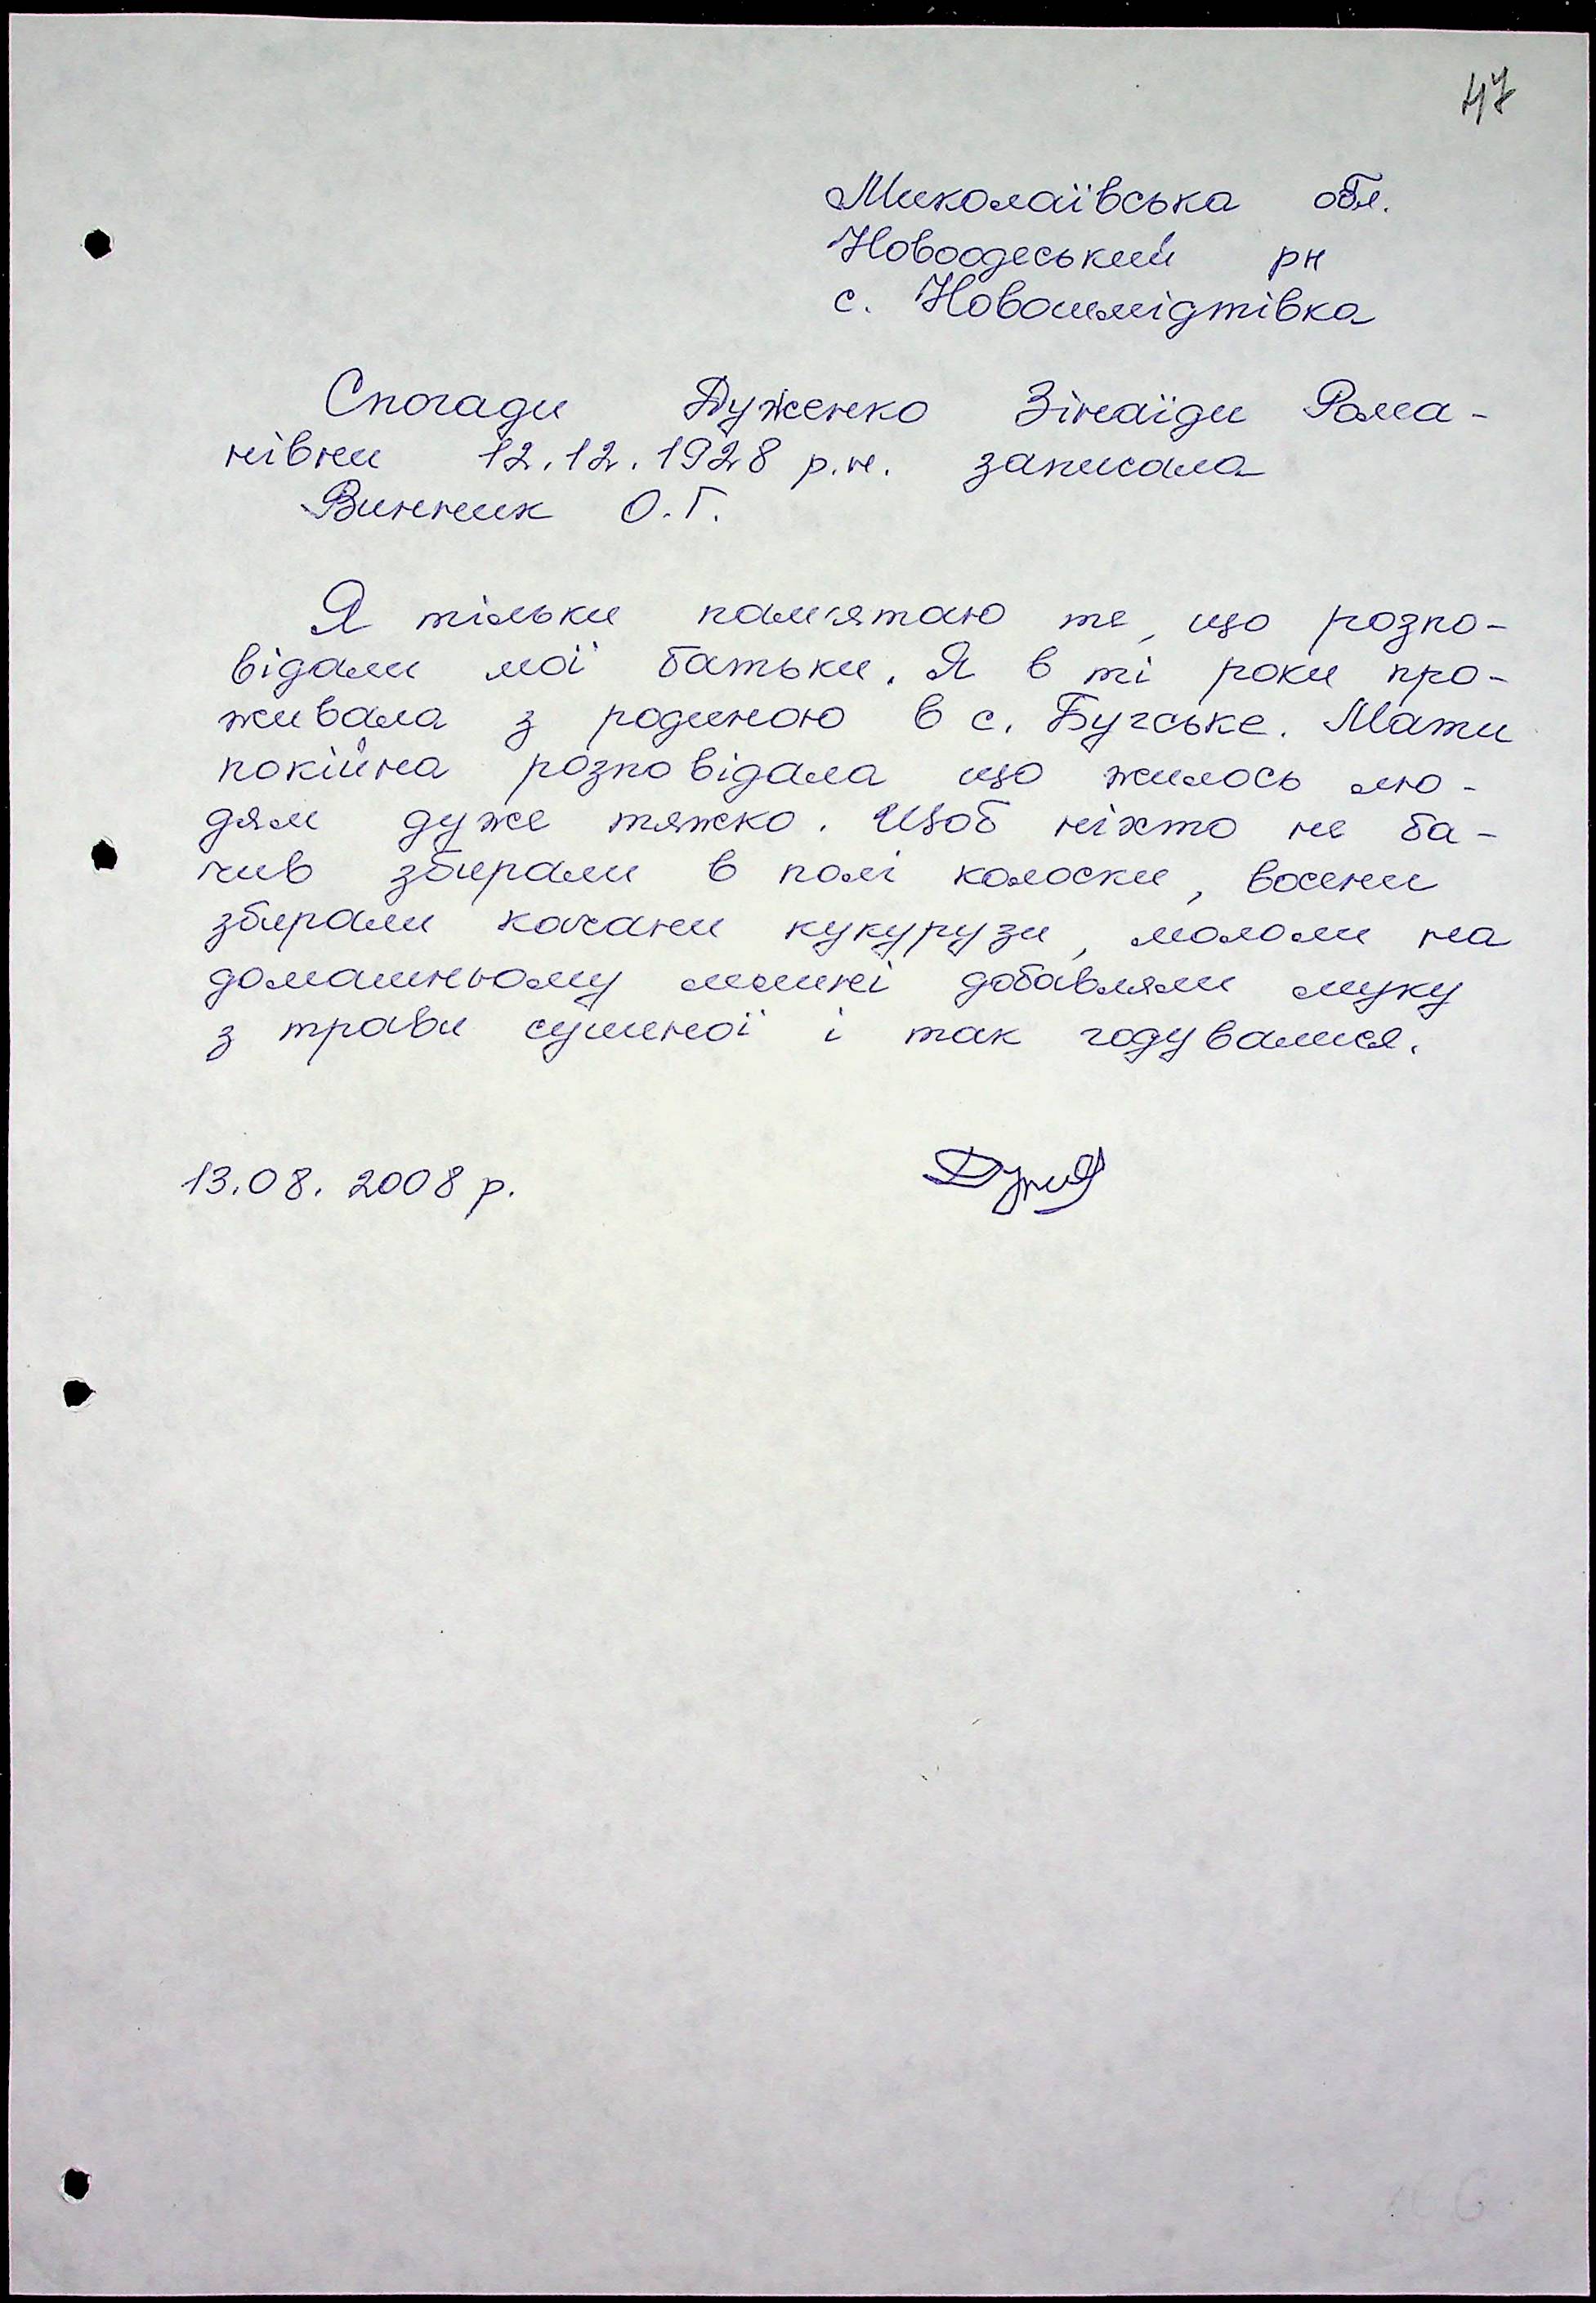 47
Миколаївська обл.
Новоодеський рн
с. Новошмідтівка
Спогади Дуженко Зінаїди Рома-
нівни 12.12.1928 р.н. записала
Винник О.Г.
Я тільки памятаю те, що розпо-
відали мої батьки. Я в ті роки про-
живала з родиною в с. Бугське. Мати
покійна розповідала що жилось лю-
дям дуже тяжко. Щоб ніхто не ба-
чив збирали в полі колоски, восени
збирали качани кукурузи, мололи на
домашньому млині добавляли муку
з трави сушеної і так годувалися.
13.08.2008 р.